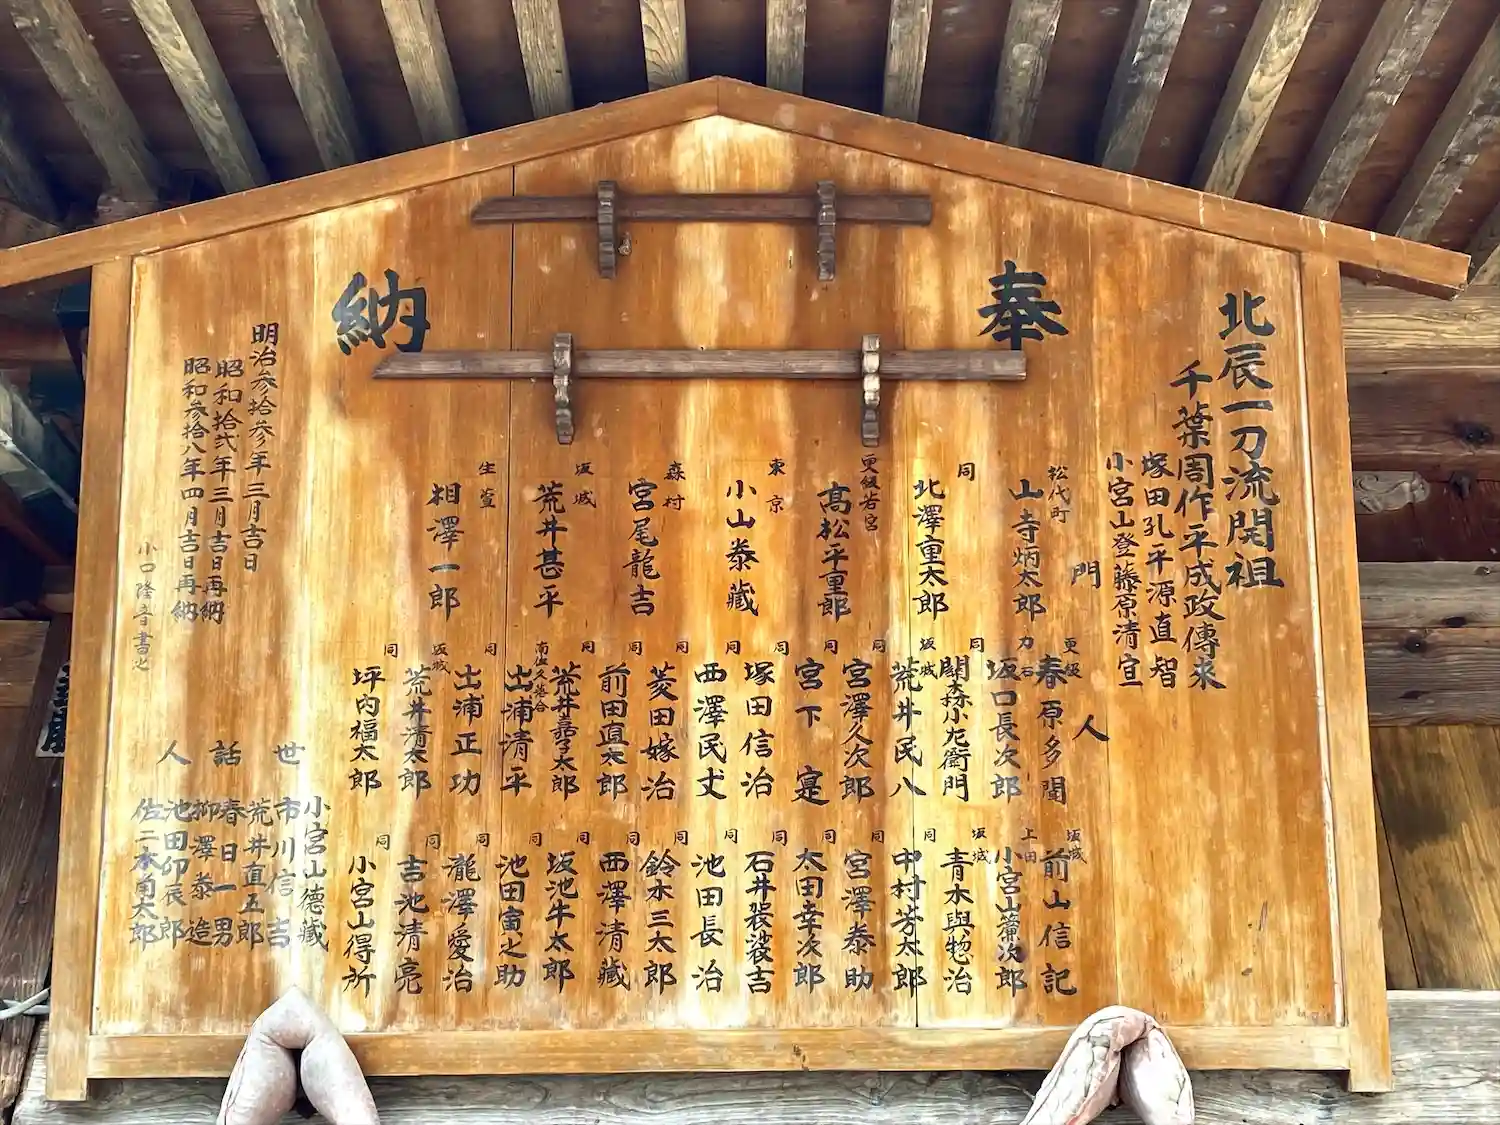 奉
納
北辰一刀流開祖
千葉周作平成政傳来
塚田孔平源直智
小宮山登藤原清宣
門
人
松代町
山寺炳太郎
同
北澤重太郎
更級若宮
髙松平重郎
東京
小山泰藏
森村
宮尾龍吉
坂城
荒井甚平
生萱
相澤一郎
更級
春原多聞
力石
坂口長次郎
同
関森小左衛門
坂城
荒井民八
同
宮澤久次郎
同
宮下寔
同
塚田信治
同
西澤民丈
同
菱田嫁治
同
前田直太郎
同
荒井嘉太郎
南佐久落合
出浦清平
同
出浦正功
坂城
荒井清太郎
同
坪内福太郎
坂城
前山信記
上田
小宮山簾次郎
坂城
青木與惣治
同
中村芳太郎
同
宮澤泰助
同
太田幸次郎
同
石井袈裟吉
同
池田長治
同
鈴木三太郎
同
西澤清藏
同
坂池牛太郎
同
池田富之助
同
瀧澤愛治
同
吉池清亮
同
小宮山得所
世
話
人
小宮山德藏
市川信吉
荒井直五郎
春日一男
柳澤泰造
池田卯辰郎
佐二木角太郎
明治参拾参年三月吉日
昭和拾弐年三月吉日再納
昭和参拾八年四月吉日再納
小口隆音書之